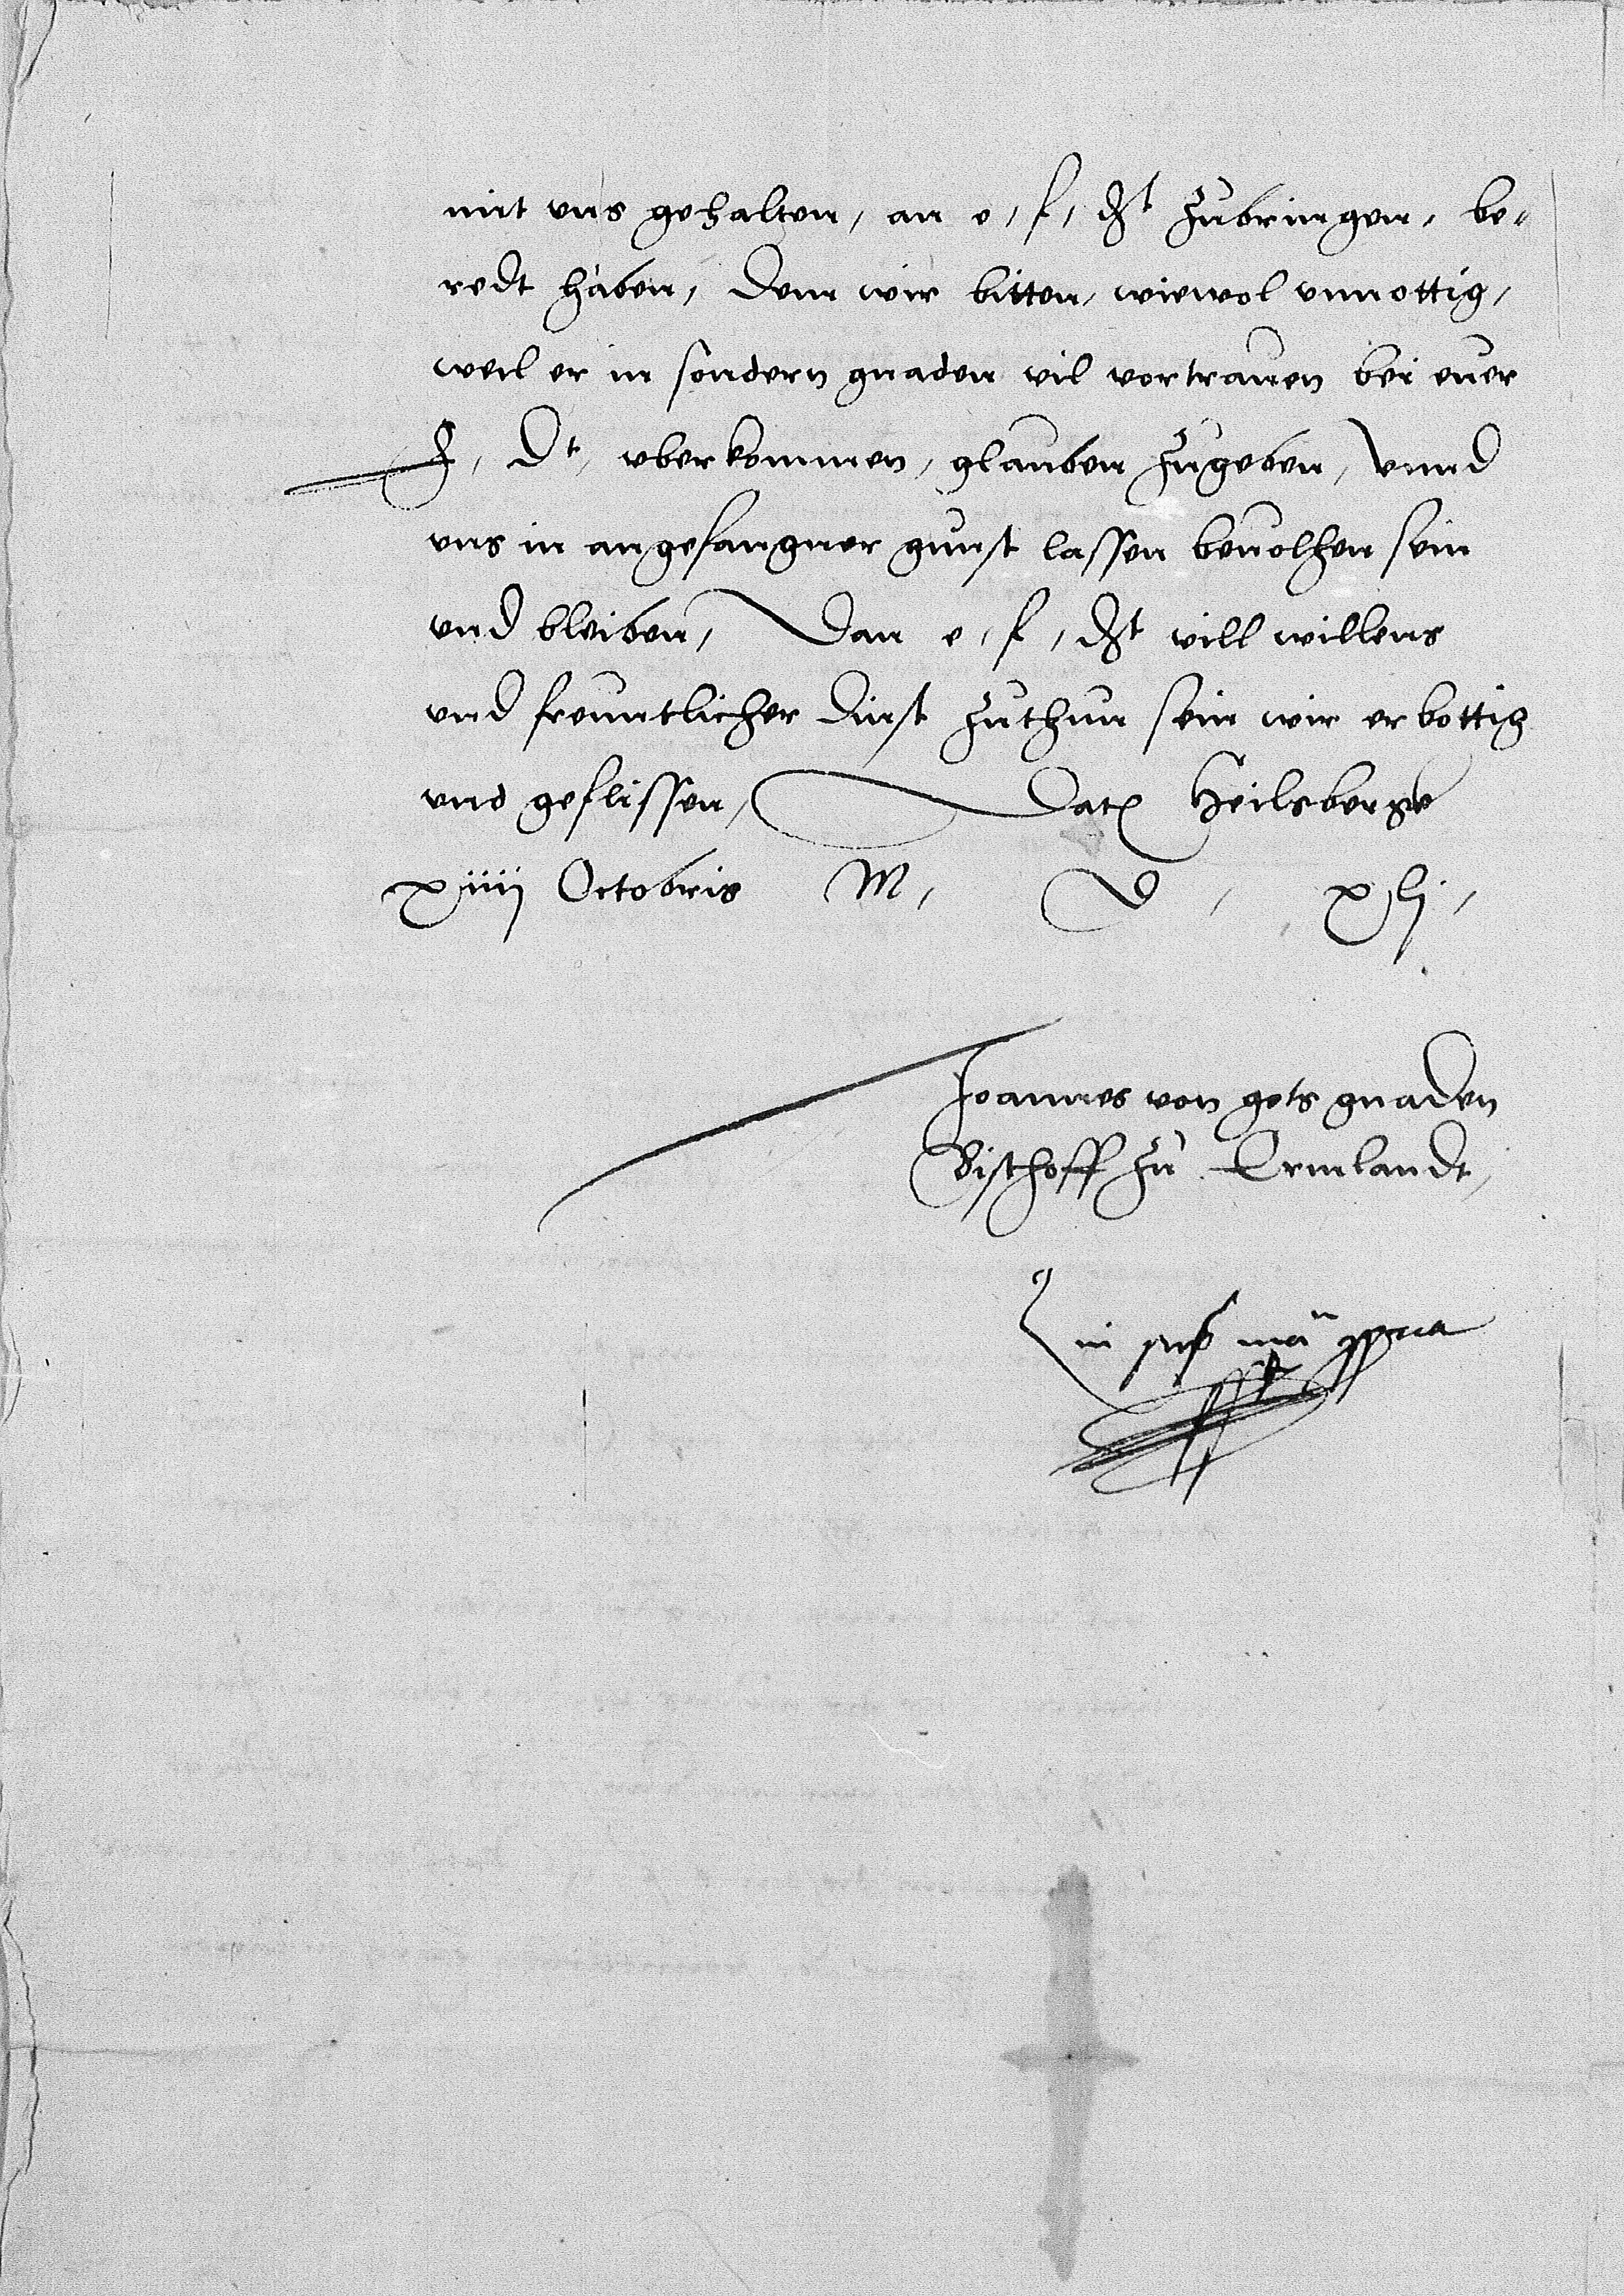 mit vns gehalten, an e, f, dht zubringen, be-
redt haben, dem wir bitten, wiewol vnnottig,
weil er in sondern gnaden vil vortrauen bei euer
f, Dt, vberkommen, glauben zugeben, vnnd
vns in angefangner gunst lassen beuolhen sein
vnd bleiben, Dan e, f, dht vill willens
vnd freuntlicher dinst zuthun sein wir erbottig
vnd geflissen, Datx Heilsberge
xiiij Octobris M, D, xlj,
Joannes von gots gnaden
Bischoff zu Ermlandt,
mppria